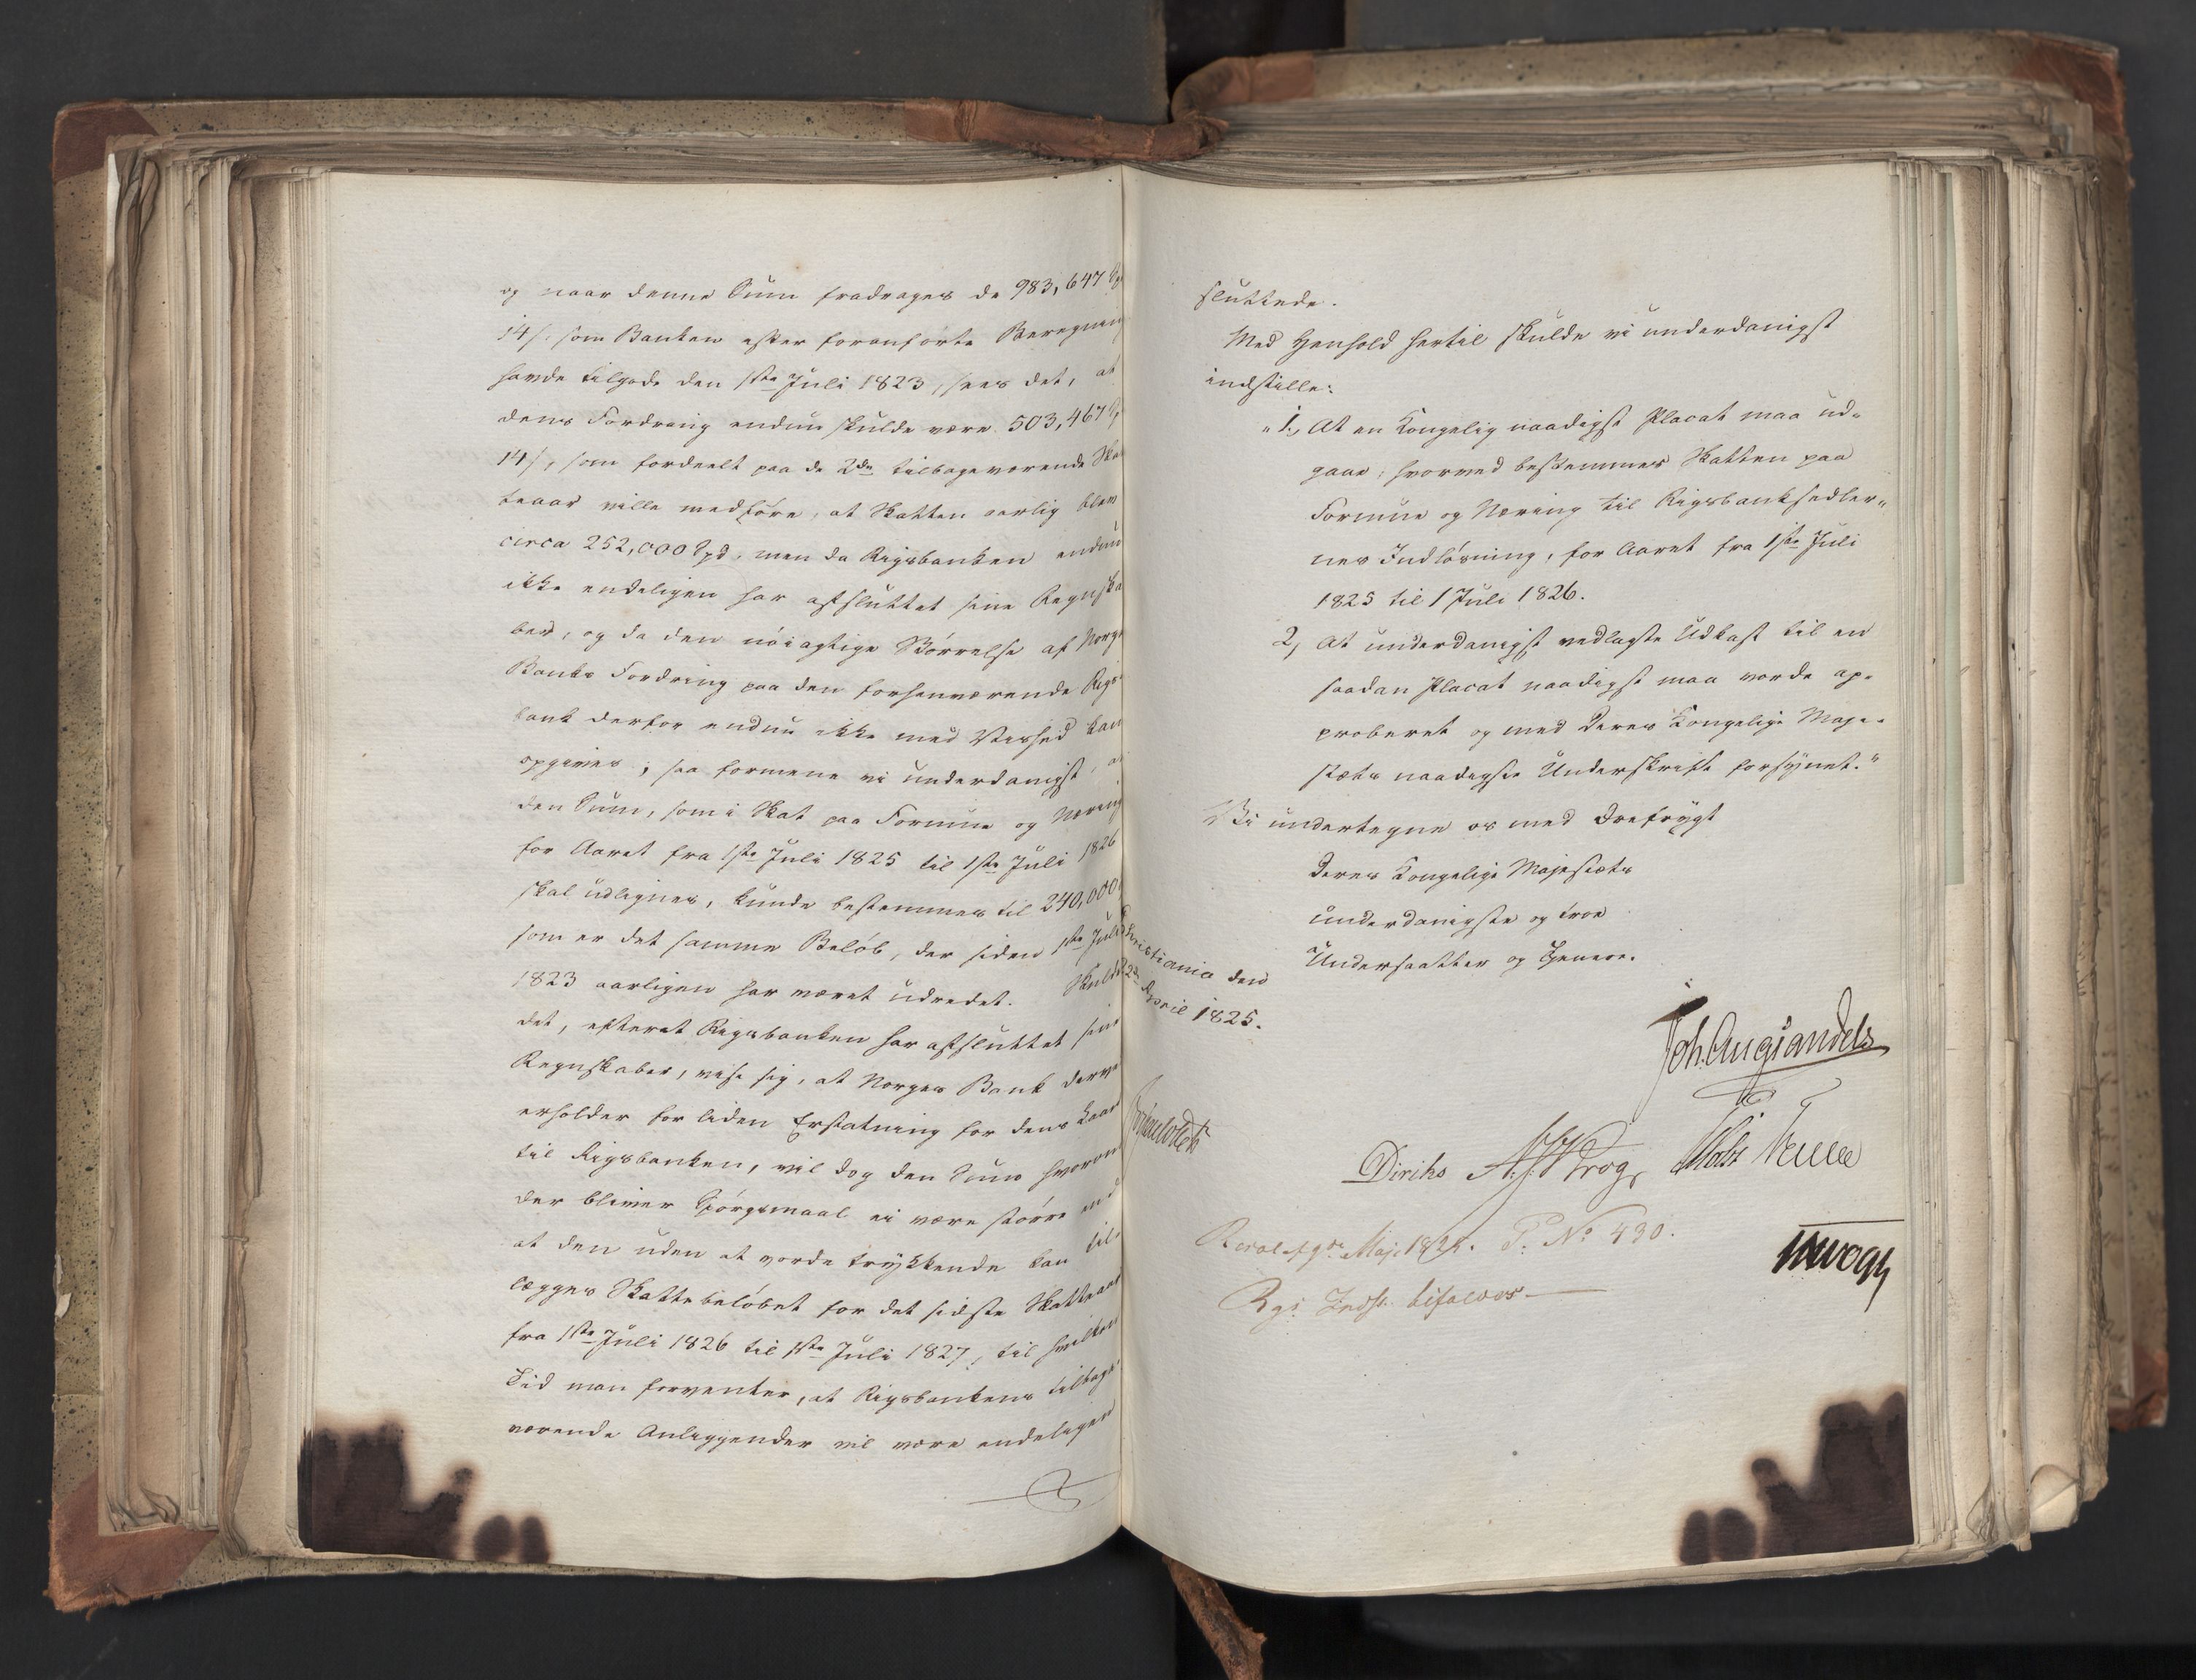 og naar denne Sum fradrages de 983,647 Spd
14 s, som Banken efter foranførte Beregning
havde tilgode den 1ste Juli 1823, sees det, at
dens Fordring endnu skulde være 503,467 Sp
14 s, som fordeelt paa de 2de tilbageværende Skat
teaar ville medføre, at Skatten aarlig blev
circa 252,000 Spd, men da Rigsbanken endnu
ikke endeligen har afsluttet sine Regnska
ber, og da den nøiagtige Størrelse af Norges
Banks Fordring paa den forhenværende Rigs
bank derfor endnu ikke med Vished kan
opgives; saa formene vi underdanigst, at
den Sum, som i Skat paa Formue og Næring
for Aaret fra 1ste Juli 1825 til 1ste Juli 1826
skal udlignes, kunde bestemmes til 240,000
som er det samme Beløb, der siden 1ste Juli
1823 aarligen har været udredet. Skulde
det, efterat Rigsbanken har afsluttet sine
Regnskaber, vise sig, at Norges Bank derve
erholder for liden Erstatning for dens Laan
til Rigsbanken, vil dog den Sum hvorom
der bliver Spørgsmaal ei være større end
at den uden at vorde trykkende kan til-
lægges Skattebeløbet for det sidste Skatteaar
fra 1ste Juli 1826 til 1ste Juli 1827, til hvilken
Tid man forventer, at Rigsbankens tilbage-
værende Anliggender vil være endeligen
sluttede.
Med Henhold hertil skulde vi underdanigst
indstille:
"1, At en Kongelig naadigst Placat maa ud-
gaae, hvorved bestemmes Skatten paa
Formue og Næring til Rigsbanksedler-
nes Indløsning, for Aaret fra 1ste Juli
1825 til 1 Juli 1826.
2, At underdanigst vedlagte Udkast til en
saadan Placat naadigst maa vorde ap-
proberet og med Deres Kongelige Maje-
stæts naadigste Underskrift forsynet."
Vi undertegne os med Ærefrygt
Deres Kongelige Majestæts
underdanigste og troe
Undersaatter og Tjenere.
Christiania den
22de April 1825.
Joh. Aug. Sandels
Diriks A. J. Krog
Motzfeldt
Resol. 9de Maj 1825. P. No 430.
Rgs Indst. bifaldes